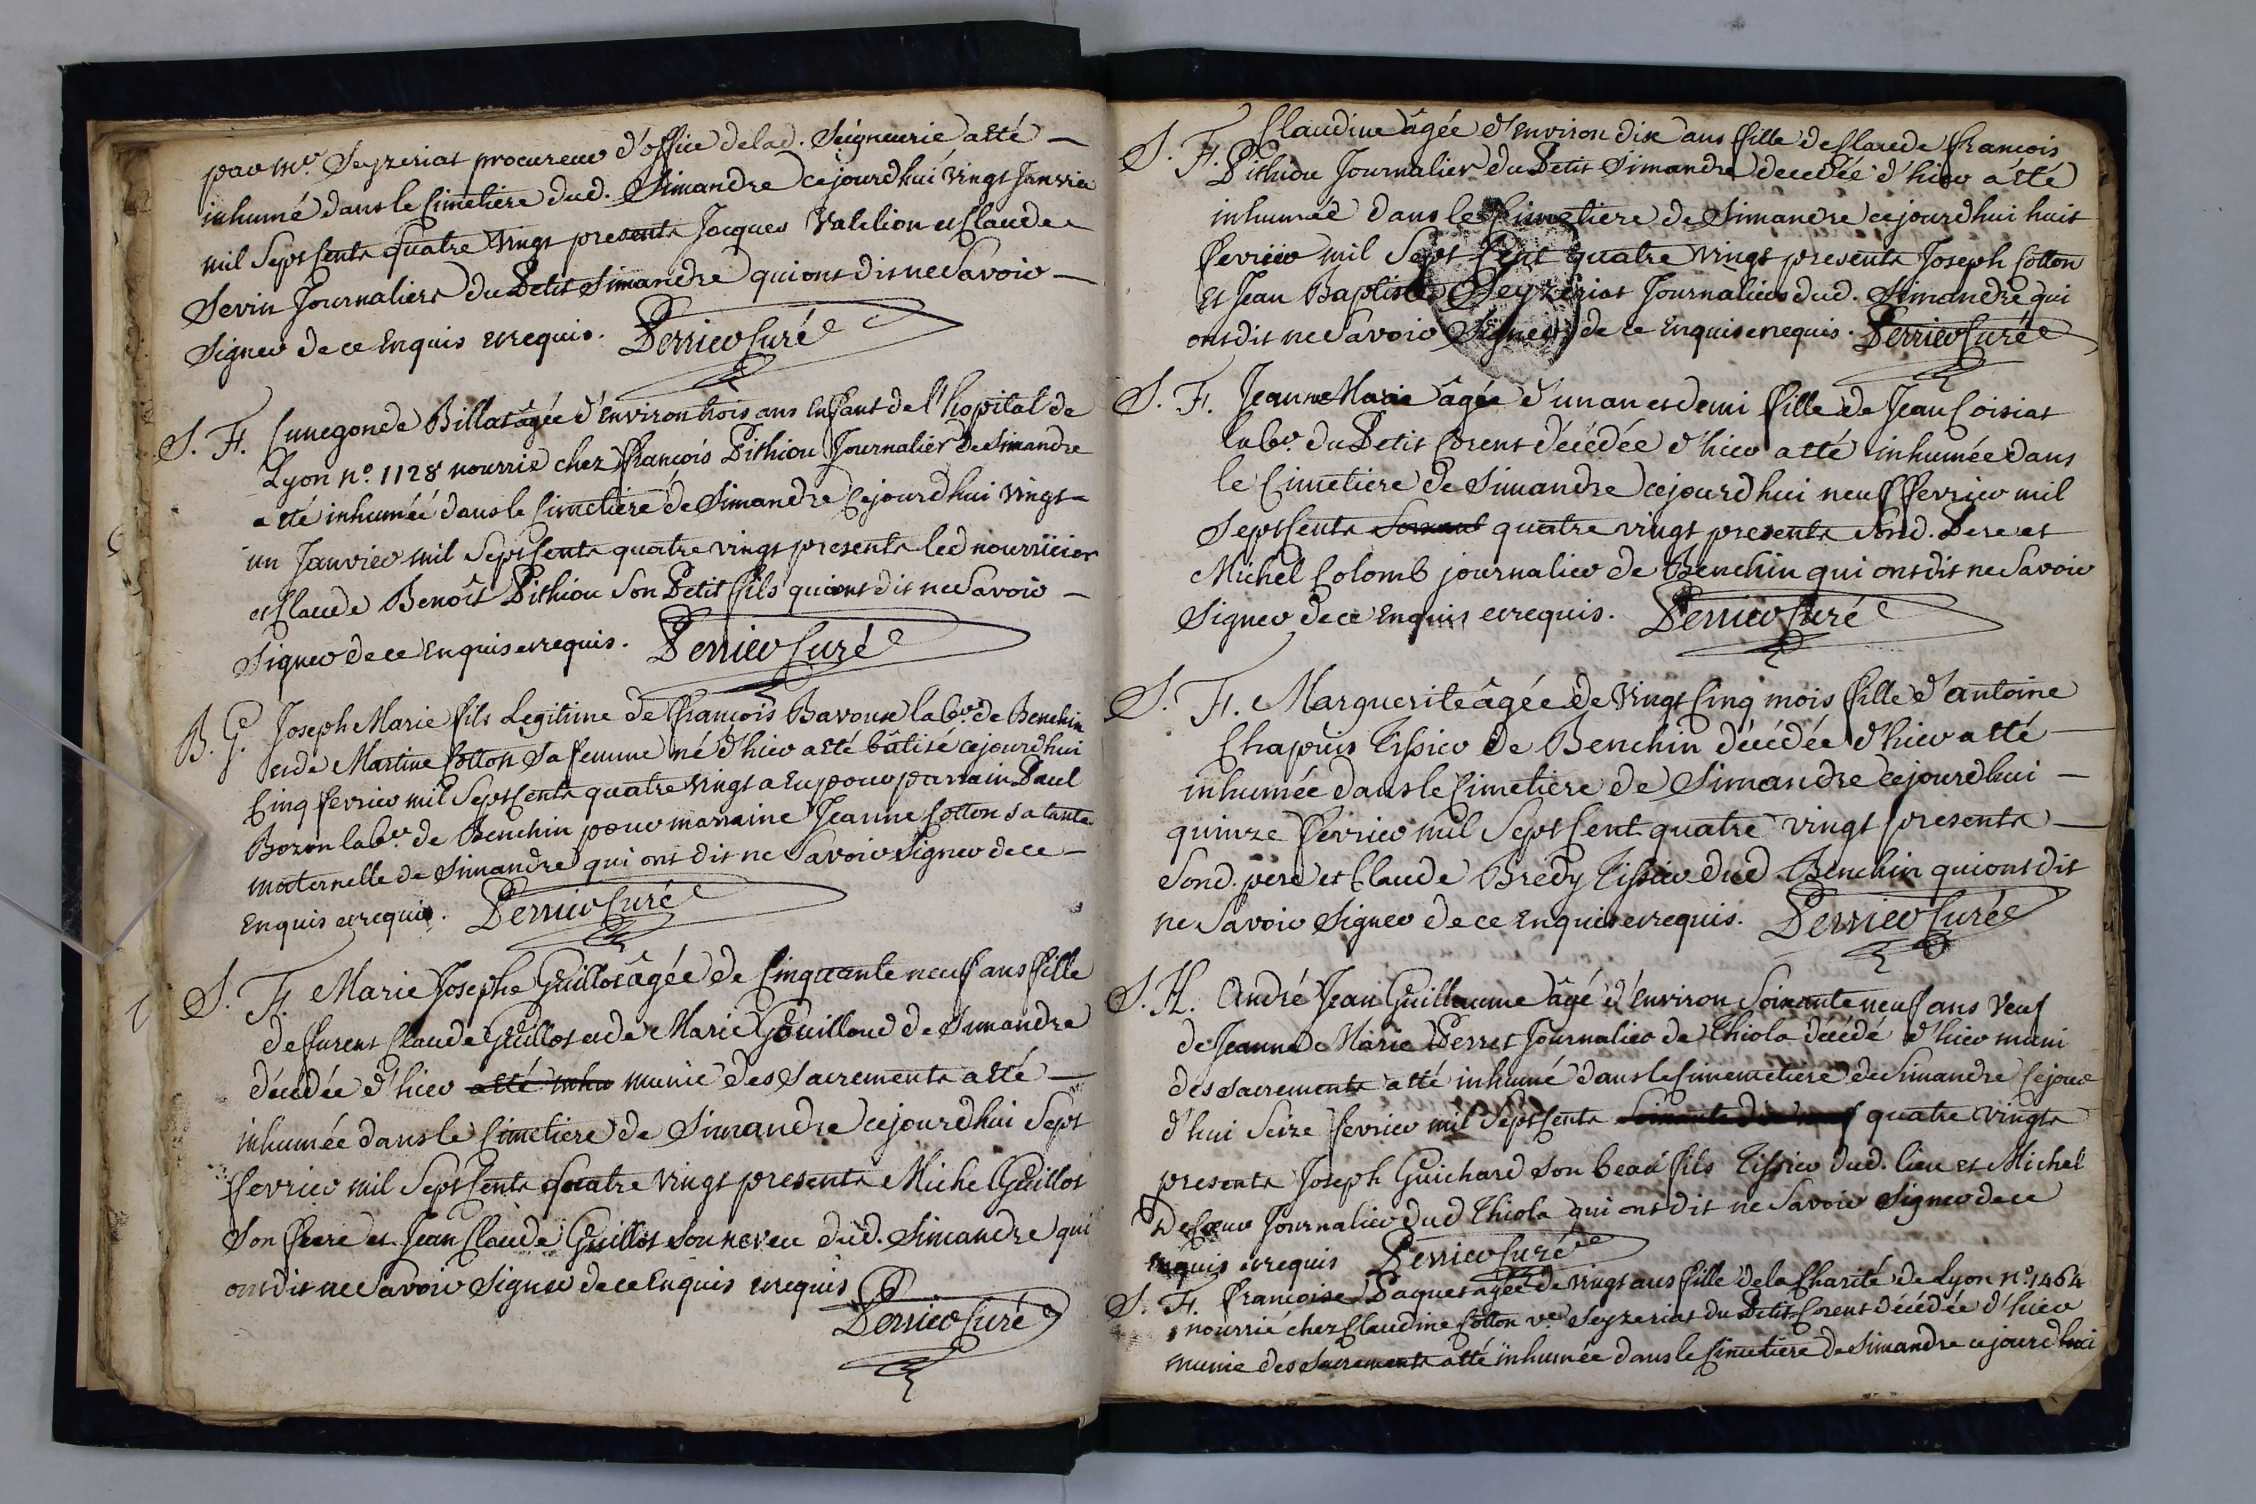 par Mr. Seyzeriat procureur d'office de lad. Seigneurie a eté
inhumé dans le Cimetiere dud. Simandre cejourdhui vingt Janvier
mil Sept Cents quatre vingt presents Jacques Vatelion et Claude
Sevin Journaliers du Petit Simandre qui ont dit ne Savoir
Signer de ce Enquis et requis. Perrier Curé
S. F. Cunegonde Billat âgée d'Environ trois ans Enfant de l'hopital de
Lyon n°. 1128 nourrie chez François Pithiou Journalier de Simandre
a eté inhumée dans le Cimetiere de Simandre Cejourdhui vingt
un Janvier mil Sept Cents quatre vingt presents led nourricier
et Claude Benoît Pithiou Son Petit fils qui ont dit ne Savoir
Signer de ce Enquis et requis. Perrier Curé
B. G. Joseph Marie fils Legitime de François Bavoux labr. de Benchin
et de Martine Cotton Sa femme né d'hier a eté bâtisé cejourdhui
Cinq fevrier mil Sept Cents quatre vingt a Eu pour parrain Paul
Bozon labr. de Benchin pour marraine Jeanne Cotton sa tante
maternelle de Simandre qui ont dit ne Savoir Signer de ce
Enquis et requis. Perrier Curé
S. F. Marie Josephe Guillot âgée de Cinquante neuf ans fille
de furent Claude Guillot et de Marie Gouilloud de Simandre
décedée d'hier a eté inhu munie des Sacrements a eté
inhumée dans le Cimetiere de Simandre cejourdhui Sept
fevrier mil Sept Cents quatre vingt presents Michel Guillot
Son frere et Jean Claude Guillot son neveu dud. Simandre qui
ont dit ne Savoir Signer de ce Enquis et requis
Perrier Curé
S. F. Claudine âgée d'Environ dix ans fille de Claude François
Pithiou Journalier du Petit Simandre decedée d'hier a eté
inhumée dans le Cimetiere de Simandre cejourdhui huit
fevrier mil Sept Cent quatre vingt presents Joseph Cotton
Et Jean Baptiste Seyzeriat Journaliers dud. Simandre qui
ont dit ne Savoir Signer de ce Enquis et requis. Perrier Curé
S. F. Jeanne Marie âgée d'un an et demi fille de Jean Coisiat
labr. du Petit Corent décédée d'hier a eté inhumée dans
le Cimetiere de Simandre cejourdhui neuf fevrier mil
Sept Cents quatre vingt presents Sond. Pere et
Michel Colomb journalier de Benchin qui ont dit ne Savoir
Signer de ce Enquis et requis. Perrier Curé
S. F. Marguerite âgée de vingt Cinq mois fille d'antoine
Chapuis Tissier de Benchin décédée d'hier a eté
inhumée dans le Cimetiere de Simandre cejourdhui
quinze fevrier mil Sept Cent quatre vingt presents
Sond. pere et Claude Brédy Tissier dud Benchin qui ont dit
ne Savoir Signer de ce Enquis et requis. Perrier Curé
S. H. André Jean Guillaume âgé d'Environ Soixante neuf ans Veuf
de Jeanne Marie Perret Journalier de Thiola décédé d'hier muni
des sacrements a eté inhumé dans le Cimemetiere de Simandre Cejour
d'hui Seize fevrier mil Sept Cents quatre vingts
presents Joseph Guichard Son beau fils Tissier dud. lieu et Michel
De Coeur Journalier dud Thiola qui ont dit ne Savoir Signer de ce
Enquis et requis Perrier Curé
S. F. Françoise Paquet agée de vingt ans fille de la Charité de Lyon n°. 1464
nourrie chez Claudine Cotton ve. Seyzeriat du Petit Corent décédée d'hier
munie des Sacrements a eté inhumée dans le Cimetiere de Simandre cejourdhui